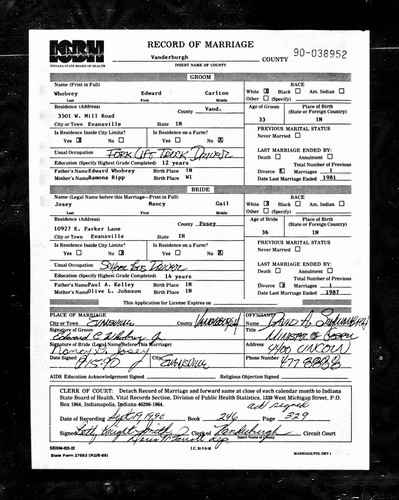 ISBH
INDIANA STATE BOARD OF HEALTH
RECORD OF MARRIAGE
Vanderburgh COUNTY
INSERT NAME OF COUNTY
90-038952
GROOM
Name (Print in Full)
Whobrey Edward Carlton
Last First Middle
RACE
White ☒ Black ☐ Am. Indian ☐
Other ☐ (Specify)
Residence (Address) County Vand.
3501 W. Mill Road
City or Town Evansville State IN
Age of Groom Place of Birth
(State or Foreign Country)
33 IN
Is Residence Inside City Limits? Is Residence on a Farm?
Yes ☒ No ☐ Yes ☐ No ☒
PREVIOUS MARITAL STATUS
Never Married ☐
Usual Occupation Fork Lift Truck Driver
Education (Specify Highest Grade Completed) 12 years
LAST MARRIAGE ENDED BY:
Death ☐ Annulment ☐
Total Number of Previous
Divorce ☒ Marriages 1
Date Last Marriage Ended 1981
Father's Name Edward Whobrey Birth Place IN
Mother's Name Ramona Ripp Birth Place WI
BRIDE
Name (Legal Name before this Marriage—Print in Full)
Josey Nancy Gail
Last First Middle
RACE
White ☒ Black ☐ Am. Indian ☐
Other ☐ (Specify)
Residence (Address) County Posey
10927 E. Parker Lane
City or Town Evansville State IN
Age of Bride Place of Birth
(State or Foreign Country)
36 IN
Is Residence Inside City Limits? Is Residence on a Farm?
Yes ☐ No ☒ Yes ☐ No ☒
PREVIOUS MARITAL STATUS
Never Married ☐
Usual Occupation School Bus Driver
Education (Specify Highest Grade Completed) 14 years
LAST MARRIAGE ENDED BY:
Death ☐ Annulment ☐
Total Number of Previous
Divorce ☒ Marriages 1
Date Last Marriage Ended 1987
Father's Name Paul A. Kelley Birth Place IN
Mother's Name Olive L. Johnson Birth Place IN
This Application for License Expires
PLACE OF MARRIAGE
City or Town Evansville County Vanderburgh
Signature of Groom
Edward C Whobrey Jr
Signature of Bride (Legal Name Before This Marriage)
Nancy G. Josey
Date Signed 9-15-90 City Evansville
OFFICIANT
Name David A.
Title Minister of Gospel
Address 4400 Lincoln
Phone Number 477-8888
AIDS Education Acknowledgement Signed
Religious Objection Signed
CLERK OF COURT: Detach Record of Marriage and forward same at close of each calendar month to Indiana
State Board of Health, Vital Records Section, Division of Public Health Statistics, 1330 West Michigan Street, P.O.
Box 1964, Indianapolis, Indiana 46206-1964.
Date of Recording Sept 19, 1990 Book 246 Page 329
Signed Betty Knight Smith Clerk of Vanderburgh Circuit Court
Insert Name of County
State Form 27663 (R2/8-89)
MARRIAGE/POL DEV 1